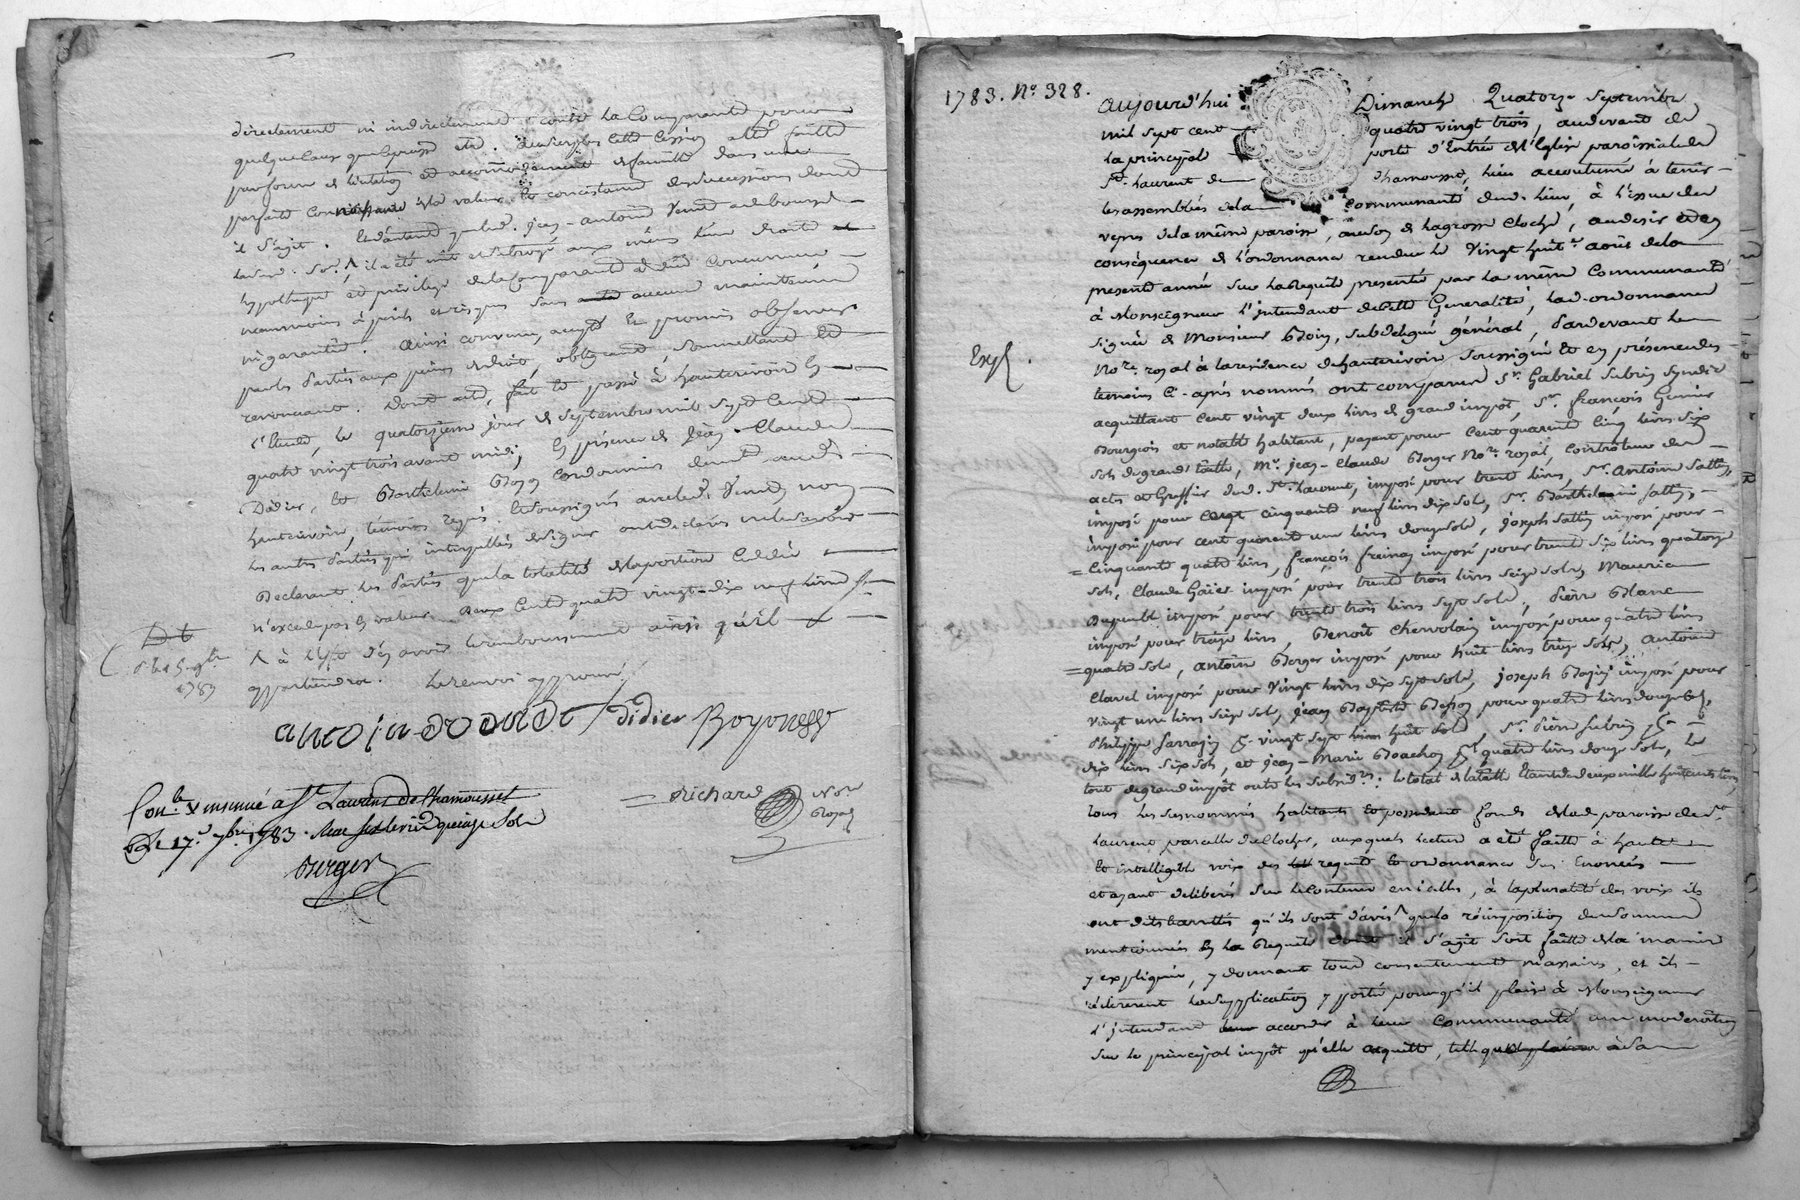 directement ni indirectement contre la Comparante pour
quelque cause que ce puisse etre. au surplus cette Cession a été faitte
par forme de traité et accommodement de famille dans une
parfaite connoissance de la valeur et consistance des successions dont
il s'agit. Jean-antoine
il a été mis et subrogé aux mêmes lieu droits
hypotheque et privilege de la Comparante
neanmoins à perils et risques sans aucune maintenue
ni garantie. ainsi convenu, accepté et promis observer
par les Parties aux peines de droit, obligeant soumettant et
renonceant. Dont acte, fait et passé à hauterivoire En
l'Etude, le quatorzieme jour de septembre mil sept Cent
quatre vingt trois avant midi, En présence de Jean-Claude
Didier, et Barthelemi Boyon Cordonnier demt aud.
hauterivoire, témoins requis et soussignés avec led.
les autres Parties qui interpellées de signer ont declaré ne le savoir
Declarant les Parties que la totalité de la portion Ceddée
n'excede pas En valeur Deux Cents quatre vingt-dix neuf livres
à l'effet d'en avoir le remboursement ainsi qu'il
appartiendra. Le renvoi approuvé
Didier Boyon
Richard Nore Royal
Con.lé & insinué à St Laurent de Chamousset
Le 17.e 7bre 1783. Reçu quinze sols
Berger
1783. No. 328.
aujourd'hui Dimanche Quatorze Septembre
mil sept cent quatre vingt trois, audevant de
la principal porte d'Entrée de l'Eglise paroissiale de
St. Laurent de Chamousset, lieu accoutumé à tenir
les assemblées de la Communauté dud. lieu, à l'issue des
vepres de la même paroisse, au son de la grosse Cloche, au desir et en
conséquence de l'ordonnance rendue le Vingt huit.e août de la
presente année sur la Requête presentée par la même Communauté
à Monseigneur l'Intendant de cette Generalité, lad. ordonnance
signée de Monsieur Boin, subdelegué général, Pardevant le
Nore. royal à la residence de hauterivoire soussigné et en présence des
temoins Ci-après nommés ont comparu Sr. Gabriel Subrin Syndic
Exp.
acquittant Cent vingt deux livres de grand impôt, Sr. françois Genier
Bourgeois et notable habitant, payant pour Cent quarente Cinq livres six
sols de grand taille, Mr. Jean-Claude Berger Nore. royal, Contrôleur des
actes et Greffier dud. St. Laurent, imposé pour trente livres, Sr. Antoine Sattin,
imposé pour Cent cinquante neuf livres dix sols, Sr. Barthelemi Sattin,
imposé pour cent quarente une livres douze sols, Joseph Sattin imposé pour
Cinquante quatre livres, françois frainay imposé pour trente six livres quatorze
sols, Claude imposé pour trente trois livres seize sols, Maurice
imposé pour trente trois livres sept sols, Pierre Blanc
imposé pour treize livres, Benoît Chervolain imposé pour quatre livres
quatre sols, antoine Berger imposé pour huit livres treize sols, antoine
Clavel imposé pour Vingt livres dix sept sols, Joseph imposé pour
Vingt une livres seize sols, Jean Baptiste pour quatre livres douze sols,
Philippe vingt sept livres huit sols, Sr. Pierre Subrin
dix livres six sols, et Jean-Marie quatre livres douze sols, le
tout de grand impôt outre les subsid.es: le total de la taille Etant de deux mille huit cents livres,
tous les susnommés habitants et possedant fonds de lad. paroisse de St.
Laurent parcelle de Cloches, auxquels lecture a eté faitte à haute
et intelligible voix des requête et ordonnance sus Enoncées
et ayant deliberé sur le Contenu en icelles, à la pluralité des voix ils
ont dit et arrêté qu'ils sont d'avis que la réimposition des sommes
mentionnées En la Requête dont il s'agit soit faitte de la maniere
y expliquée, y donnant tout consentement nécessaire, et ils
réiterent la supplication y portée pour qu'il plaise à Monseigneur
l'Intendant accorder à leur Communauté une moderation
sur le principal impôt qu'elle acquitte, telle à Sa